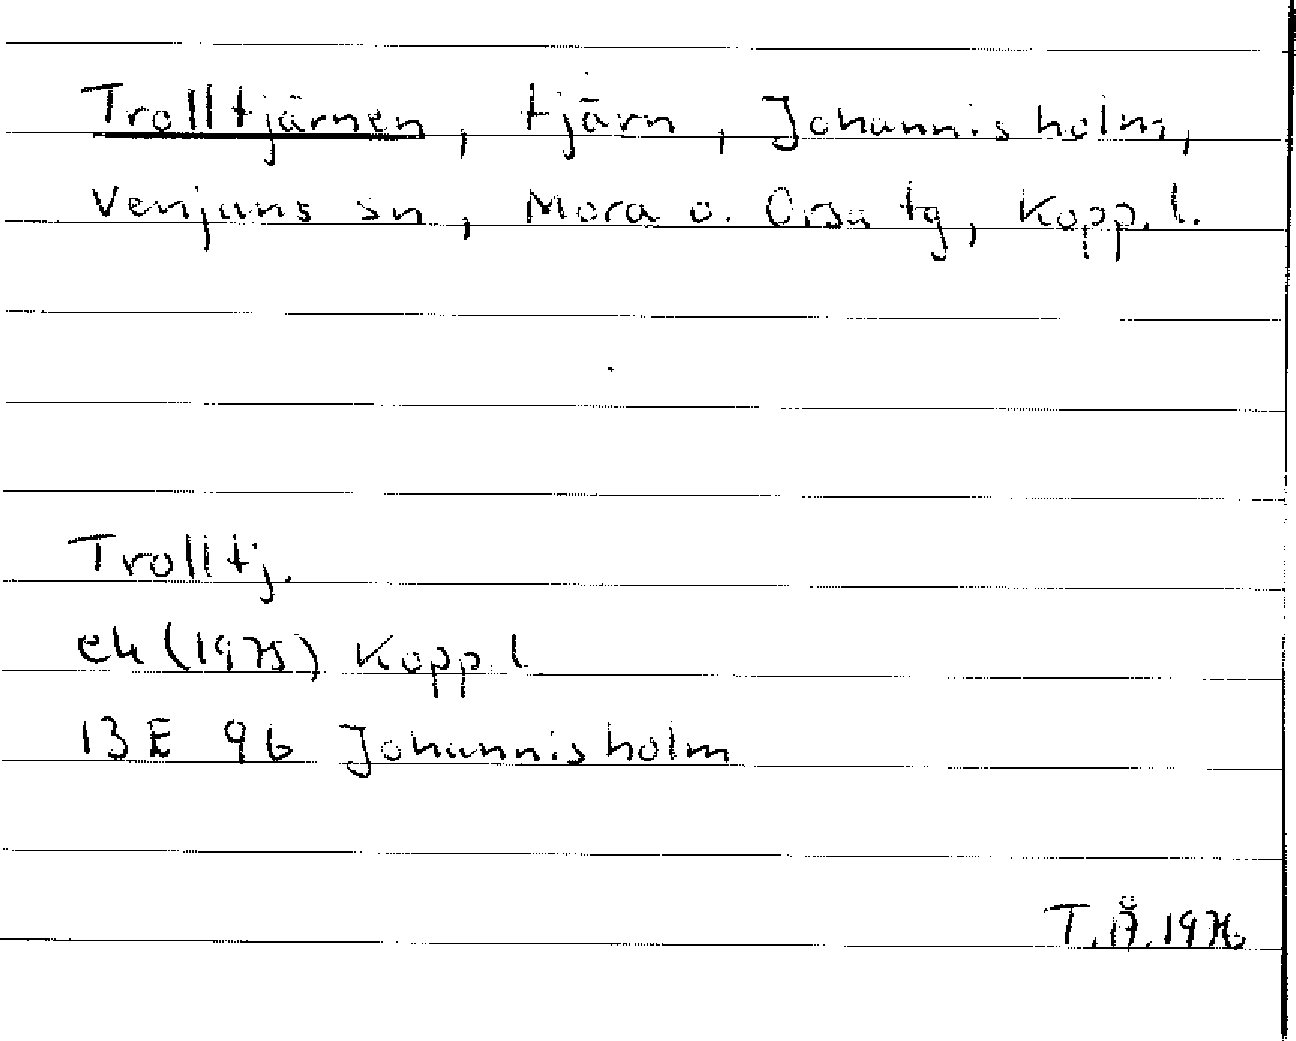 Trolltjärnen, tjärn, Johannisholm,
Venjans sn, Mora o. Orsa tg, Kopp. l.
Trolltj.
ek (1975) Kopp l
13E 9b Johannisholm
T.Å. 1976